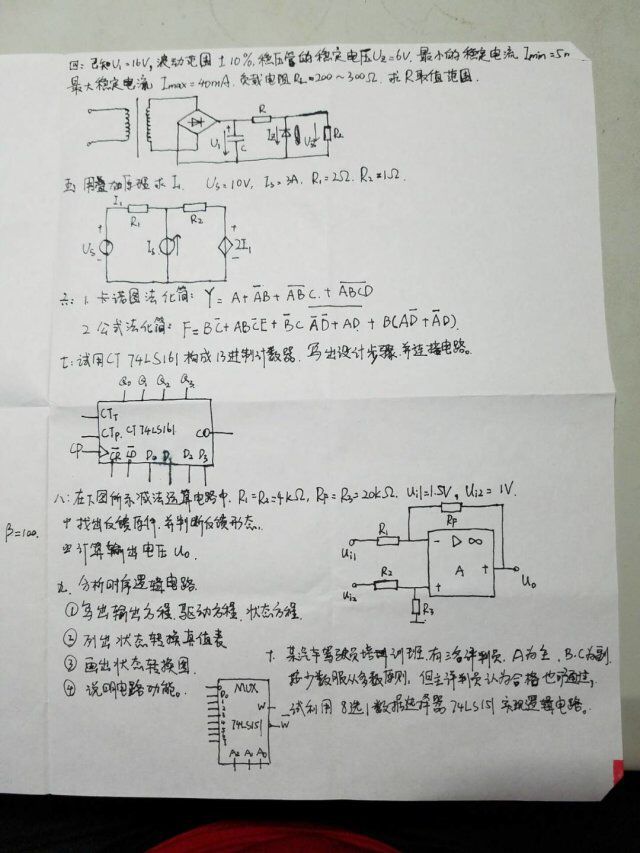 四: 已知U₁=16V, 波动范围±10%, 稳压管的稳定电压Uz=6V. 最小的稳定电流 Imin=5m
最大稳定电流 Imax=40mA. 负载电阻RL=200~300Ω. 求R取值范围.
R
U₁ C Iz Uz RL
五: 用叠加原理求I₁. Us=10V, Is=3A. R₁=2Ω. R₂=1Ω.
I₁
R₁ R₂
+ +
Us Is 2I₁
- -
六: 1. 卡诺图法化简: Y=A+A̅B+A̅B̅C+A̅B̅C̅D
2. 公式法化简: F=BC̅+ABC̅E+B̅C A̅D̅+AD+B(AD̅+A̅D).
七: 试用CT 74LS161构成13进制计数器, 写出设计步骤, 并连接电路。
Q₀ Q₁ Q₂ Q₃
CT_T
CT_P CT 74LS161 CO
CP
C̅R̅ L̅D̅ D₀ D₁ D₂ D₃
八: 在下图所示减法运算电路中, R₁=R₂=4kΩ, RF=R₃=20kΩ, Ui1=1.5V, Ui2=1V.
① 找出反馈原件, 并判断反馈形态.
β=100.
② 计算输出电压U₀.
RF
Ui1 R₁ - ▷ ∞
A +
Ui2 R₂ + U₀
R₃
九. 分析时序逻辑电路
① 写出输出方程, 驱动方程, 状态方程
② 列出状态转换真值表
③ 画出状态转换图
④ 说明电路功能。
十. 某汽车驾驶员培训班, 有三名评判员, A为主, B.C为副
按少数服从多数原则, 但主评判员认为合格也可通过,
试利用8选1数据选择器74LS151实现逻辑电路。
MUX
D₀
1
2
3
4
5
6
7
74LS151
W
W̅
A₂ A₁ A₀